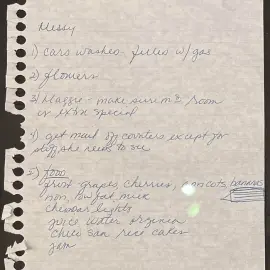 Messy
1) cars washed - filled w/ gas
2) flowers
3) - make sure room
is extra special
4) get mail off counters except for
stuff she needs to see
5) FOOD
fruit grapes, cherries, apricots, bananas
non, low fat milk
cheddar lights
juice water
rice cakes
jam